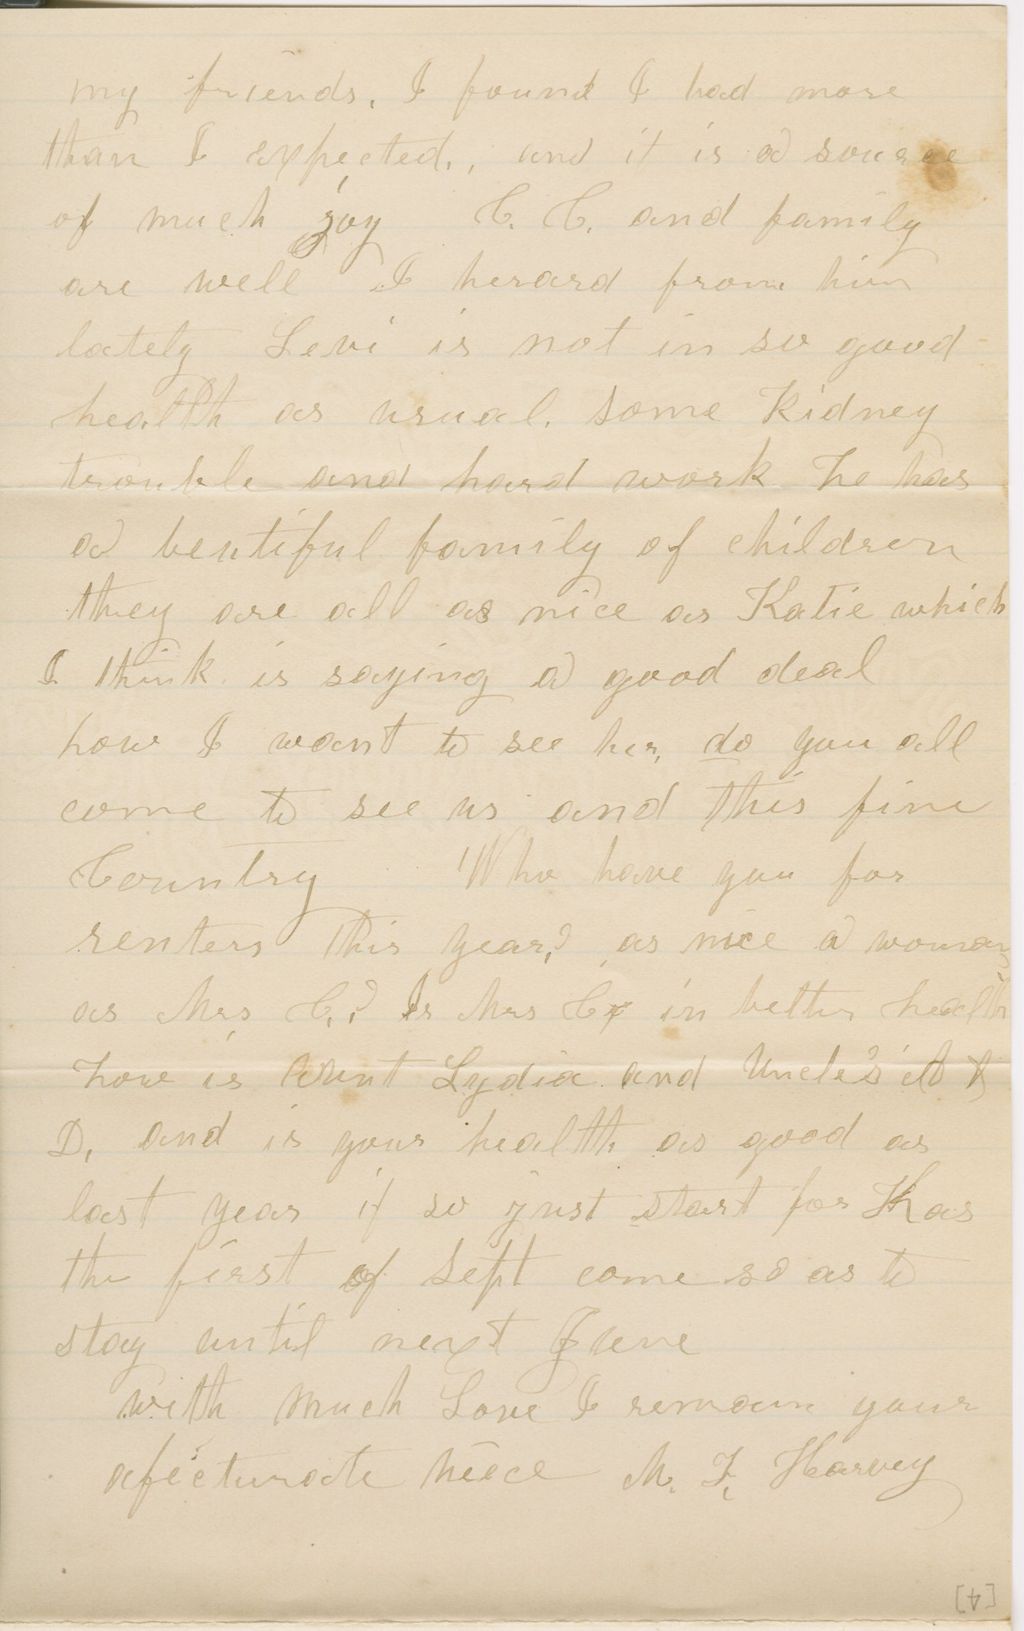 my friends. I found I had more
than I expected., and it is a source
of much joy C. C. and family
are well I herard from him
lately Levi is not in so good
health as usual. some Kidney
trouble and hard work he has
a beutiful family of children
they are all as nice as Katie which
I think is saying a good deal
how I want to see her, do you all
come to see us and this fine
Country Who have you for
renters this year? as nice a woman
as Mrs C.? Is Mrs in better health
how is Aunt Lydia and Uncle's
D. and is your health as good as
last year if so just start for Kas
the first of Sept come so as to
stay until next June
with much Love I remain your
afecturate niece M. F. Harvey
[4]